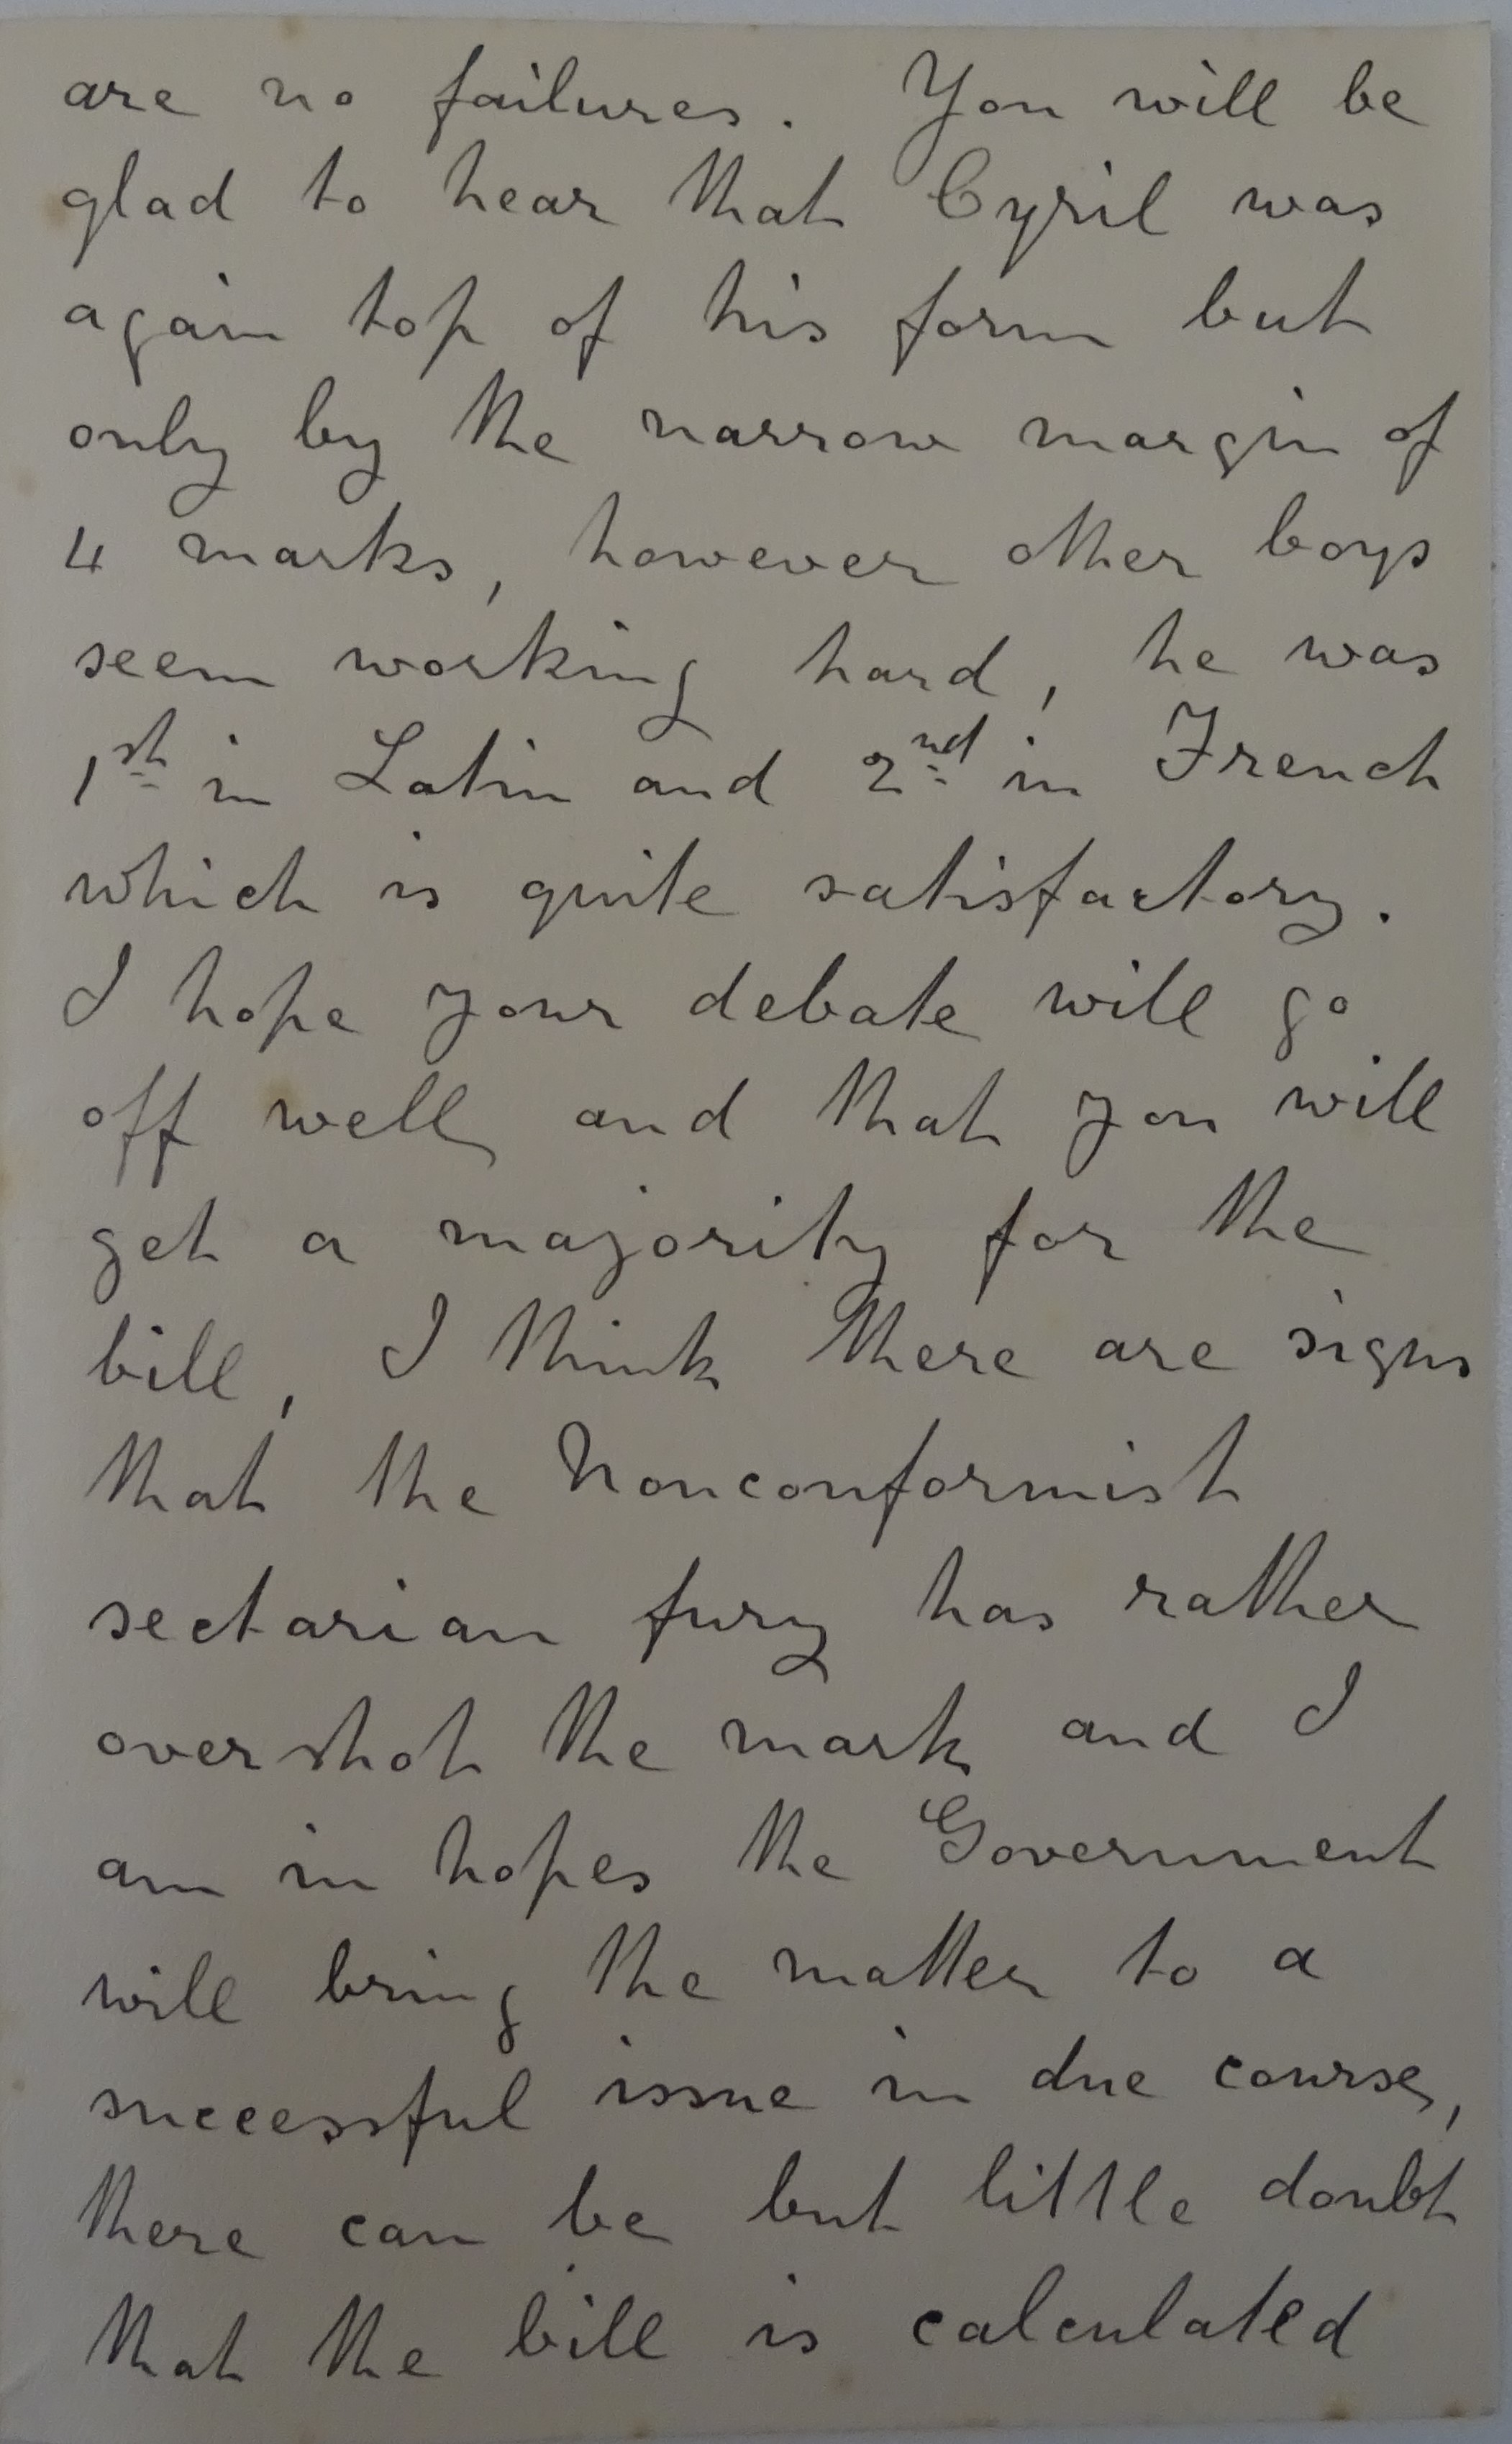 are no failures. You will be
glad to hear that Cyril was
again top of his form but
only by the narrow margin of
4 marks, however other boys
seem working hard, he was
1st in Latin and 2nd in French
which is quite satisfactory.
I hope your debate will go
off well and that you will
get a majority for the
bill, I think there are signs
that the Nonconformist
sectarian fury has rather
overshot the mark and I
am in hopes the Government
will bring the matter to a
successful issue in due course,
there can be but little doubt
that the bill is calculated